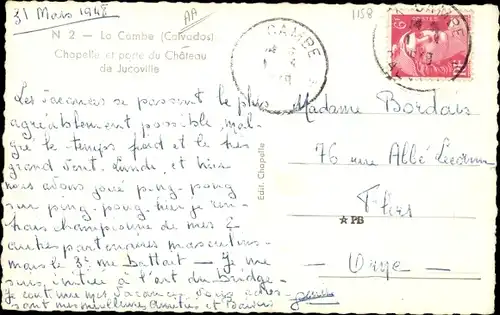 31 Mars 1948
AA
1158
N 2 - La Cambe (Calvados)
Chapelle et porte du Château
de Jucoville
CAMBE
Les vacances se passent le plus
agréablement possible, mal-
gré le temps froid et le très
grand vent. Lundi, et hier
nous avons joué ping-pong
sur ping-pong. hier je
champione de mes 2
autres partenaires masculins
mais le 3e me battait - Je me
suis initiée à l'art du bridge
Je continue mes vacances vous
mes meilleures amitiés et Baisers
Edit. Chapelle
Madame Bordais
76 rue Allé
Flers
★ PB
Orne